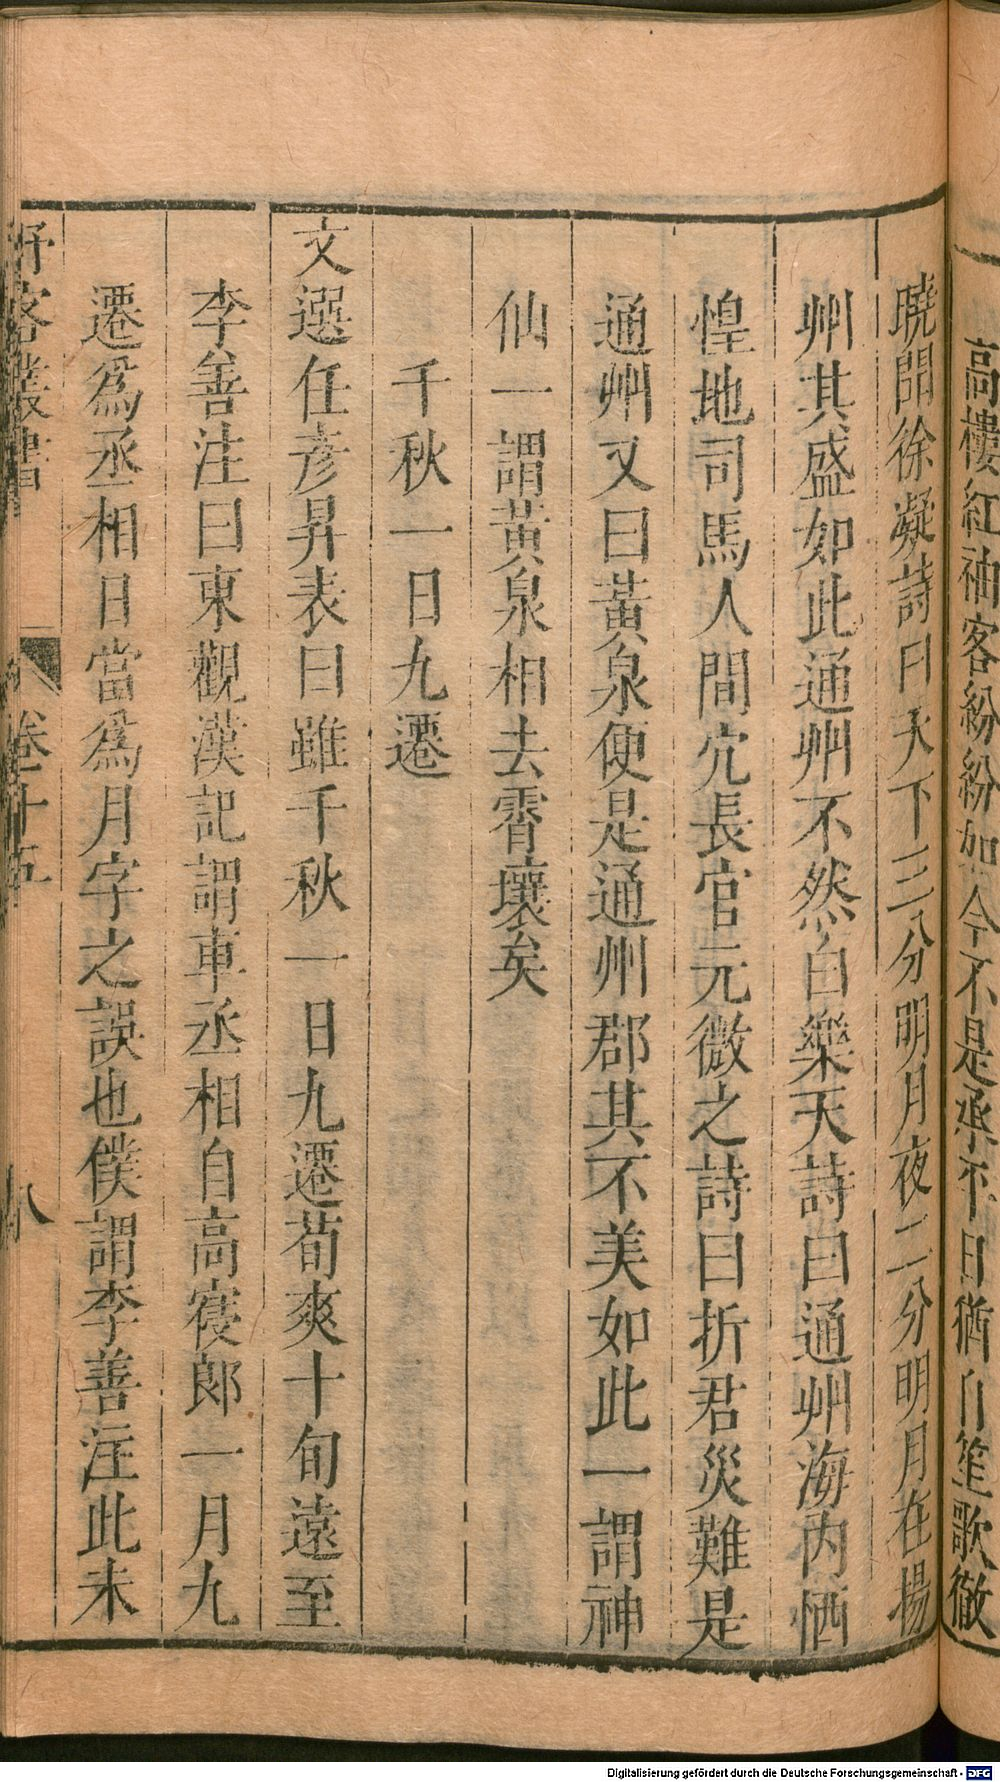 高樓紅袖客紛紛如今不是承平日猶自笙歌徹
曉聞徐凝詩曰天下三分明月夜二分明月在揚
州其盛如此通州不然白樂天詩曰通州海內恓
惶地司馬人間宂長官元微之詩曰折君災難是
通州又曰黃泉便是通州郡其不美如此一謂神
仙一謂黃泉相去霄壤矣
千秋一日九遷
文選任彥昇表曰雖千秋一日九遷荀爽十旬遠至
李善注曰東觀漢記謂車丞相自高寑郎一月九
遷爲丞相日當爲月字之誤也僕謂李善注此未
野客叢書
卷十五
八
Digitalisierung gefördert durch die Deutsche Forschungsgemeinschaft - DFG